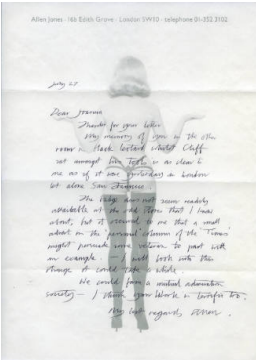 Allen Jones · 16b Edith Grove · London SW10 · telephone 01-352 3102
July 27
Dear Joanna
Thanks for your letter.
My memory of you in the other
room in black leotard whilst Cliff
sat amongst his Tools is as clear to
me as if it was yesterday in London
let alone San Francisco.
The image does not seem readily
available at the odd stores that I know
about, but it occurred to me that a small
advert in the 'personal column of the Times'
might persuade some to part with
an example. — I will look into this
though it could take a while.
We could form a mutual admiration
society — I think your work is terrific too.
My best regards, Allen.